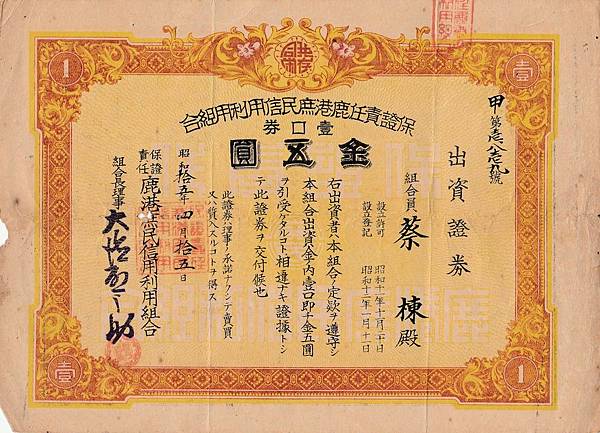 保證責任鹿港庶民信用利用組合
壹口券
金五圓
壹
1
甲第號
出資證券
組合員 蔡 棟殿
設立許可
設立登記 昭和十二年一月十一日
右出資者ハ本組合ノ定款ヲ遵守シ
本組合出資金ノ內壹口即チ金五圓
ヲ引受ケタルコト相違ナキ證據トシ
テ此證券ヲ交付候也
此證券ハ理事ノ承諾ナクシテ賣買
又ハ質入スルコトヲ得ス
昭和拾五年四月拾五日
保證責任 鹿港庶民信用利用組合
組合長理事 大 之助
壹
1